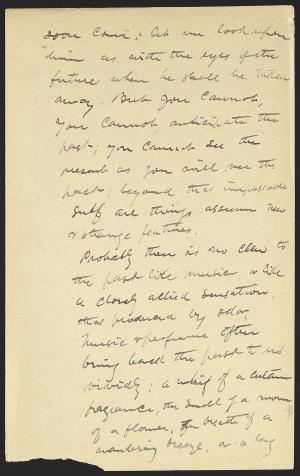 soon come; let me look upon
him as with the eyes of the
future when he shall be taken
away. But you cannot,
you cannot anticipate the
past; you cannot see the
present as you will see the
past; beyond that impassable
gulf are things assume new
& strange features.
Probably there is no clew to
the past like music, or like
a closely allied sensation,
that produced by odor,
Music & perfume often
bring back the past to us
vividly; a whiff of a certain
fragrance, the smell of a room
of a flower, the breath of a
wandering breeze, or a song